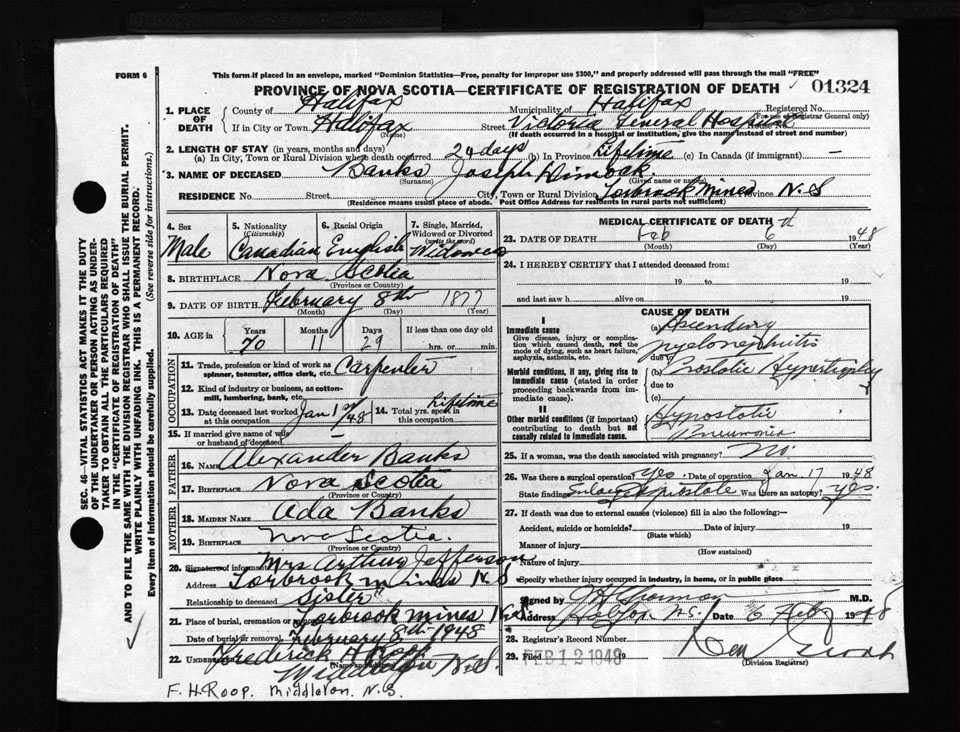 FORM 6
This form if placed in an envelope, marked "Dominion Statistics—Free, penalty for improper use $300," and properly addressed will pass through the mail "FREE"
PROVINCE OF NOVA SCOTIA—CERTIFICATE OF REGISTRATION OF DEATH 01324
1. PLACE OF DEATH
County of Halifax Municipality of Halifax Registered No.
(For use of Registrar General only)
If in City or Town Halifax Street Victoria General Hospital House No.
(If death occurred in a hospital or institution, give the name instead of street and number)
2. LENGTH OF STAY (in years, months and days)
(a) In City, Town or Rural Division where death occurred 20 days (b) In Province Lifetime (c) In Canada (if immigrant) —
3. NAME OF DECEASED Banks Joseph Dimock
(Surname) (Given name or names)
RESIDENCE No. Street City, Town or Rural Division Torbrook Mines Province N.S
(Residence means usual place of abode. Post Office Address for residents in rural parts not sufficient)
4. Sex Male
5. Nationality (Citizenship) Canadian
6. Racial Origin English
7. Single, Married, Widowed or Divorced (write the word) Widowed
8. BIRTHPLACE Nova Scotia
(Province or Country)
9. DATE OF BIRTH February 8th 1877
(Month) (Day) (Year)
10. AGE in Years Months Days If less than one day old
70 11 29 hrs. or min.
OCCUPATION
11. Trade, profession or kind of work as spinner, teamster, office clerk, etc. Carpenter
12. Kind of industry or business, as cotton-mill, lumbering, bank, etc.
13. Date deceased last worked at this occupation Jan 1 /48 14. Total yrs. spent in this occupation Lifetime
15. If married give name of wife or husband of deceased —
FATHER
16. NAME Alexander Banks
17. BIRTHPLACE Nova Scotia
(Province or Country)
MOTHER
18. MAIDEN NAME Ada Banks
19. BIRTHPLACE Nova Scotia.
(Province or Country)
20. Signature of informant Mrs Arthur Jefferson
Address Torbrook mines N.S
Relationship to deceased Sister
21. Place of burial, cremation or removal Torbrook mines N.S
Date of burial or removal February 8th 1948
22. UNDERTAKER Frederick H Roop
(Name and address)
Middleton N.S.
F. H. Roop. Middleton. N.S.
MEDICAL CERTIFICATE OF DEATH
23. DATE OF DEATH Feb 6th 1948
(Month) (Day) (Year)
24. I HEREBY CERTIFY that I attended deceased from:
19 to 19
and last saw h alive on 19
CAUSE OF DEATH
I
Immediate cause
Give disease, injury or complication which caused death, not the mode of dying, such as heart failure, asphyxia, asthenia, etc.
(a) Ascending Pyelonephritis
due to
Morbid conditions, if any, giving rise to immediate cause (stated in order proceeding backwards from immediate cause).
(b) Prostatic Hypertrophy
due to
(c)
II
Other morbid conditions (if important) contributing to death but not causally related to immediate cause.
Hypostatic Pneumonia
25. If a woman, was the death associated with pregnancy? no.
26. Was there a surgical operation? Yes. Date of operation Jan. 17 1948
State findings prostate Was there an autopsy? yes.
27. If death was due to external causes (violence) fill in also the following:—
Accident, suicide or homicide? Date of injury 19
(State which)
Manner of injury
(How sustained)
Nature of injury
Specify whether injury occurred in industry, in home, or in public place
Signed by M.D.
Address Halifax N.S. 6 Feb 1948
28. Registrar's Record Number
29. Filed FEB 12 1948 19
(Division Registrar)
SEC. 46—VITAL STATISTICS ACT MAKES IT THE DUTY
OF THE UNDERTAKER OR PERSON ACTING AS UNDERTAKER TO OBTAIN ALL THE PARTICULARS REQUIRED
IN THE "CERTIFICATE OF REGISTRATION OF DEATH"
AND TO FILE THE SAME WITH THE DIVISION REGISTRAR WHO SHALL ISSUE THE BURIAL PERMIT.
WRITE PLAINLY WITH UNFADING INK. THIS IS A PERMANENT RECORD.
Every item of Information should be carefully supplied. (See reverse side for instructions.)